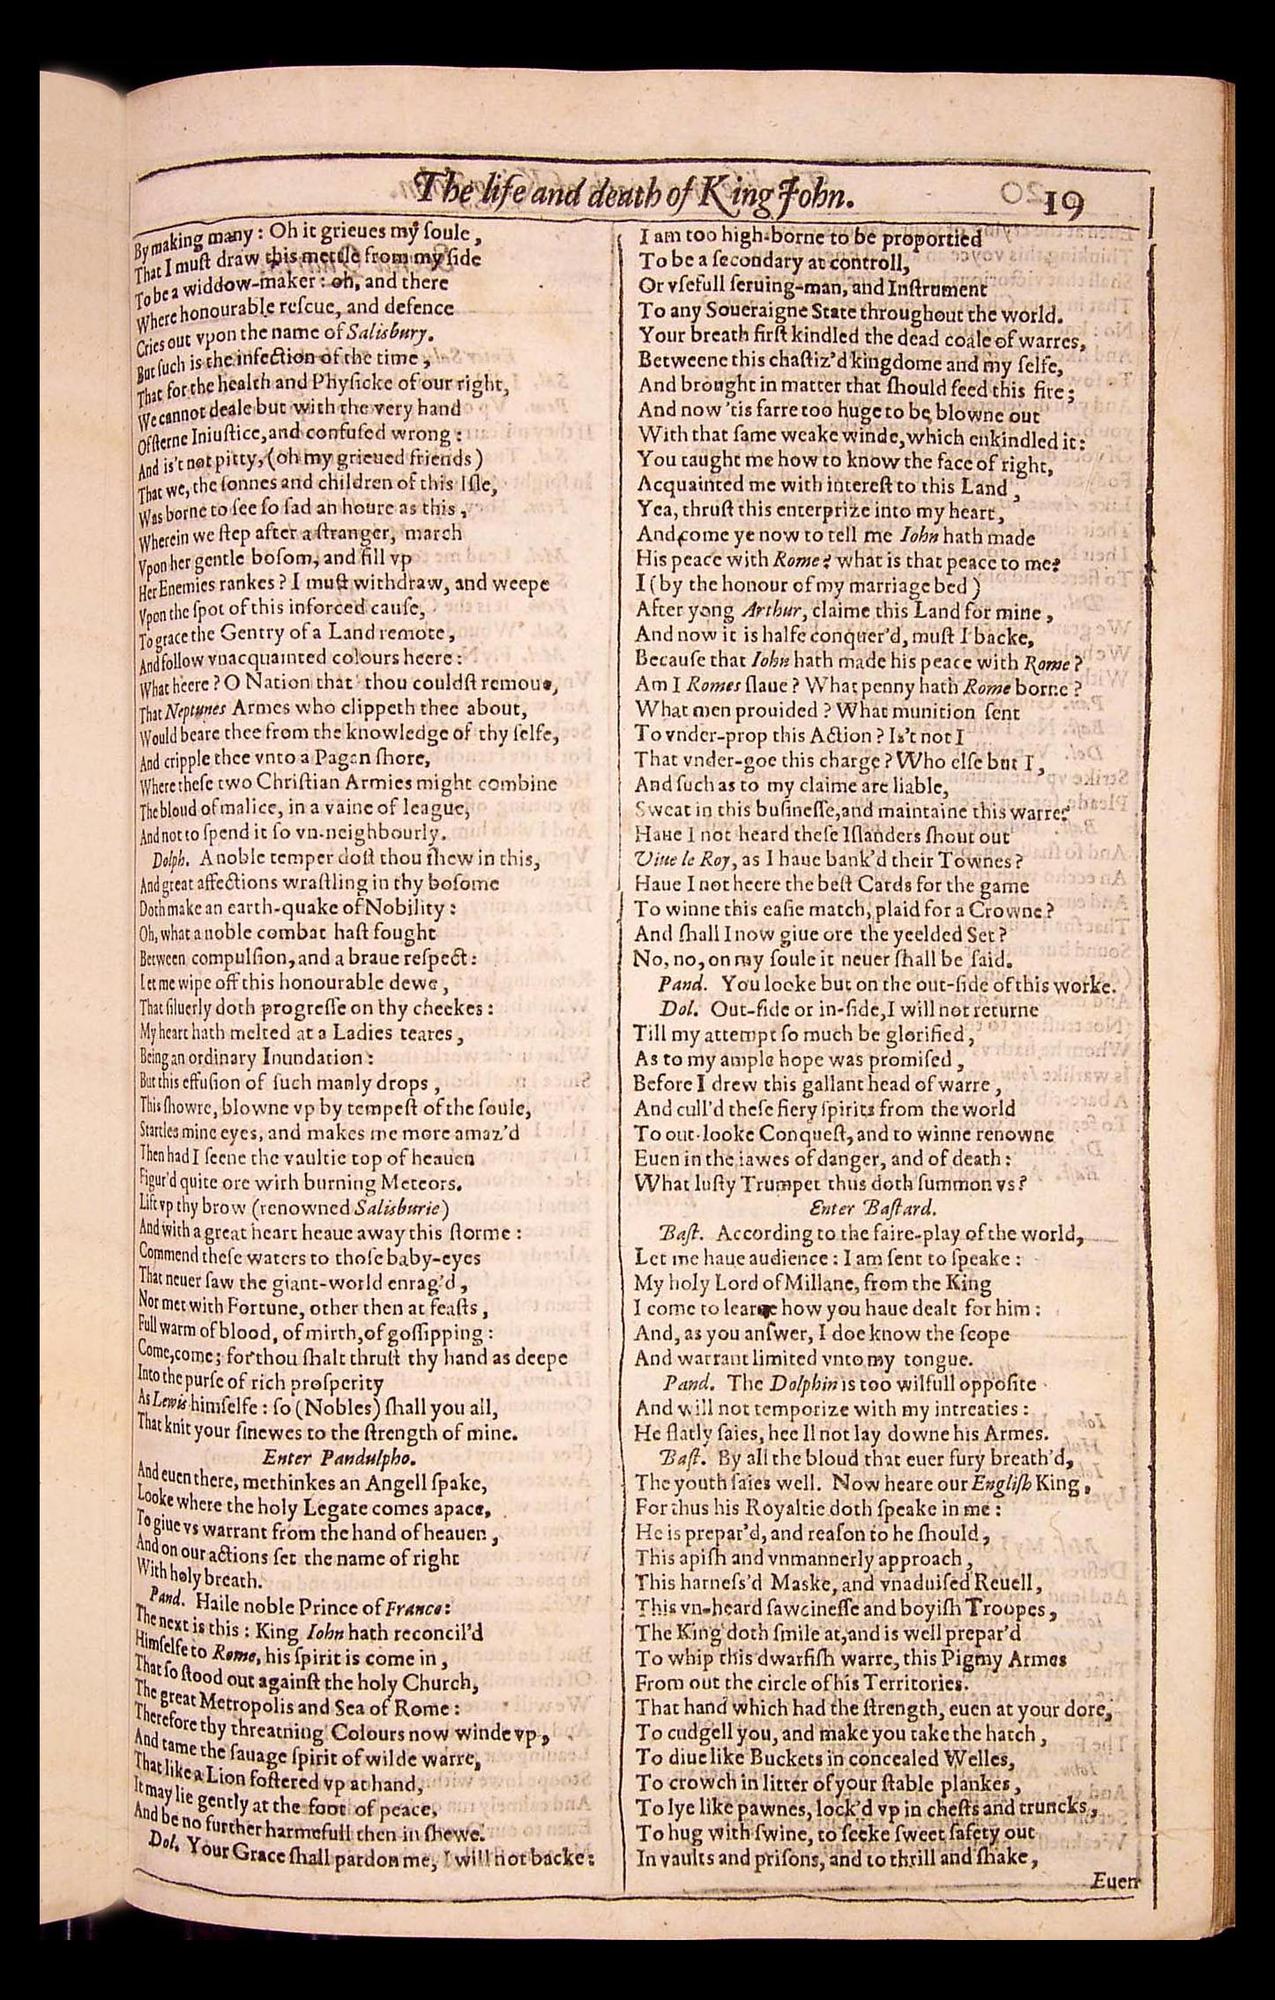 The life and death of King John.
19
By making many: Oh it grieues my soule,
That I must draw this mettle from my side
To be a widdow-maker: oh, and there
Where honourable rescue, and defence
Cries out vpon the name of Salisbury.
But such is the infection of the time,
That for the health and Physicke of our right,
We cannot deale but with the very hand
Of sterne Iniustice, and confused wrong:
And is't not pitty, (oh my grieued friends)
That we, the sonnes and children of this Isle,
Was borne to see so sad an houre as this,
Wherein we step after a stranger, march
Vpon her gentle bosom, and fill vp
Her Enemies rankes? I must withdraw, and weepe
Vpon the spot of this inforced cause,
To grace the Gentry of a Land remote,
And follow vnacquainted colours heere:
What heere? O Nation that thou couldst remoue,
That Neptunes Armes who clippeth thee about,
Would beare thee from the knowledge of thy selfe,
And cripple thee vnto a Pagan shore,
Where these two Christian Armies might combine
The bloud of malice, in a vaine of league,
And not to spend it so vn-neighbourly.
Dolph. A noble temper dost thou shew in this,
And great affections wrastling in thy bosome
Doth make an earth-quake of Nobility:
Oh, what a noble combat hast fought
Between compulsion, and a braue respect:
Let me wipe off this honourable dewe,
That siluerly doth progresse on thy cheekes:
My heart hath melted at a Ladies teares,
Being an ordinary Inundation:
But this effusion of such manly drops,
This showre, blowne vp by tempest of the soule,
Startles mine eyes, and makes me more amaz'd
Then had I seene the vaultie top of heauen
Figur'd quite ore with burning Meteors.
Lift vp thy brow (renowned Salisburie)
And with a great heart heaue away this storme:
Commend these waters to those baby-eyes
That neuer saw the giant-world enrag'd,
Nor met with Fortune, other then at feasts,
Full warm of blood, of mirth, of gossipping:
Come, come; for thou shalt thrust thy hand as deepe
Into the purse of rich prosperity
As Lewis himselfe: so (Nobles) shall you all,
That knit your sinewes to the strength of mine.
Enter Pandulpho.
And euen there, methinkes an Angell spake,
Looke where the holy Legate comes apace,
To giue vs warrant from the hand of heauen,
And on our actions set the name of right
With holy breath.
Pand. Haile noble Prince of France:
The next is this: King Iohn hath reconcil'd
Himselfe to Rome, his spirit is come in,
That so stood out against the holy Church,
The great Metropolis and Sea of Rome:
Therefore thy threatning Colours now winde vp,
And tame the sauage spirit of wilde warre,
That like a Lion fostered vp at hand,
It may lie gently at the foot of peace,
And be no further harmefull then in shewe.
Dol. Your Grace shall pardon me, I will not backe:
I am too high-borne to be proportied
To be a secondary at controll,
Or vsefull seruing-man, and Instrument
To any Soueraigne State throughout the world.
Your breath first kindled the dead coale of warres,
Betweene this chastiz'd kingdome and my selfe,
And brought in matter that should feed this fire;
And now 'tis farre too huge to be blowne out
With that same weake winde, which enkindled it:
You taught me how to know the face of right,
Acquainted me with interest to this Land,
Yea, thrust this enterprize into my heart,
And come ye now to tell me Iohn hath made
His peace with Rome? what is that peace to me?
I (by the honour of my marriage bed)
After yong Arthur, claime this Land for mine,
And now it is halfe conquer'd, must I backe,
Because that Iohn hath made his peace with Rome?
Am I Romes slaue? What penny hath Rome borne?
What men prouided? What munition sent
To vnder-prop this Action? Is't not I
That vnder-goe this charge? Who else but I,
And such as to my claime are liable,
Sweat in this businesse, and maintaine this warre?
Haue I not heard these Islanders shout out
Viue le Roy, as I haue bank'd their Townes?
Haue I not heere the best Cards for the game
To winne this easie match, plaid for a Crowne?
And shall I now giue ore the yeelded Set?
No, no, on my soule it neuer shall be said.
Pand. You looke but on the out-side of this worke.
Dol. Out-side or in-side, I will not returne
Till my attempt so much be glorified,
As to my ample hope was promised,
Before I drew this gallant head of warre,
And cull'd these fiery spirits from the world
To out-looke Conquest, and to winne renowne
Euen in the iawes of danger, and of death:
What lusty Trumpet thus doth summon vs?
Enter Bastard.
Bast. According to the faire-play of the world,
Let me haue audience: I am sent to speake:
My holy Lord of Millane, from the King
I come to learne how you haue dealt for him:
And, as you answer, I doe know the scope
And warrant limited vnto my tongue.
Pand. The Dolphin is too wilfull opposite
And will not temporize with my intreaties:
He flatly saies, hee ll not lay downe his Armes.
Bast. By all the bloud that euer fury breath'd,
The youth saies well. Now heare our English King,
For thus his Royaltie doth speake in me:
He is prepar'd, and reason to he should,
This apish and vnmannerly approach,
This harness'd Maske, and vnaduised Reuell,
This vn-heard sawcinesse and boyish Troopes,
The King doth smile at, and is well prepar'd
To whip this dwarfish warre, this Pigmy Armes
From out the circle of his Territories.
That hand which had the strength, euen at your dore,
To cudgell you, and make you take the hatch,
To diue like Buckets in concealed Welles,
To crowch in litter of your stable plankes,
To lye like pawnes, lock'd vp in chests and truncks,
To hug with swine, to seeke sweet safety out
In vaults and prisons, and to thrill and shake,
Euen